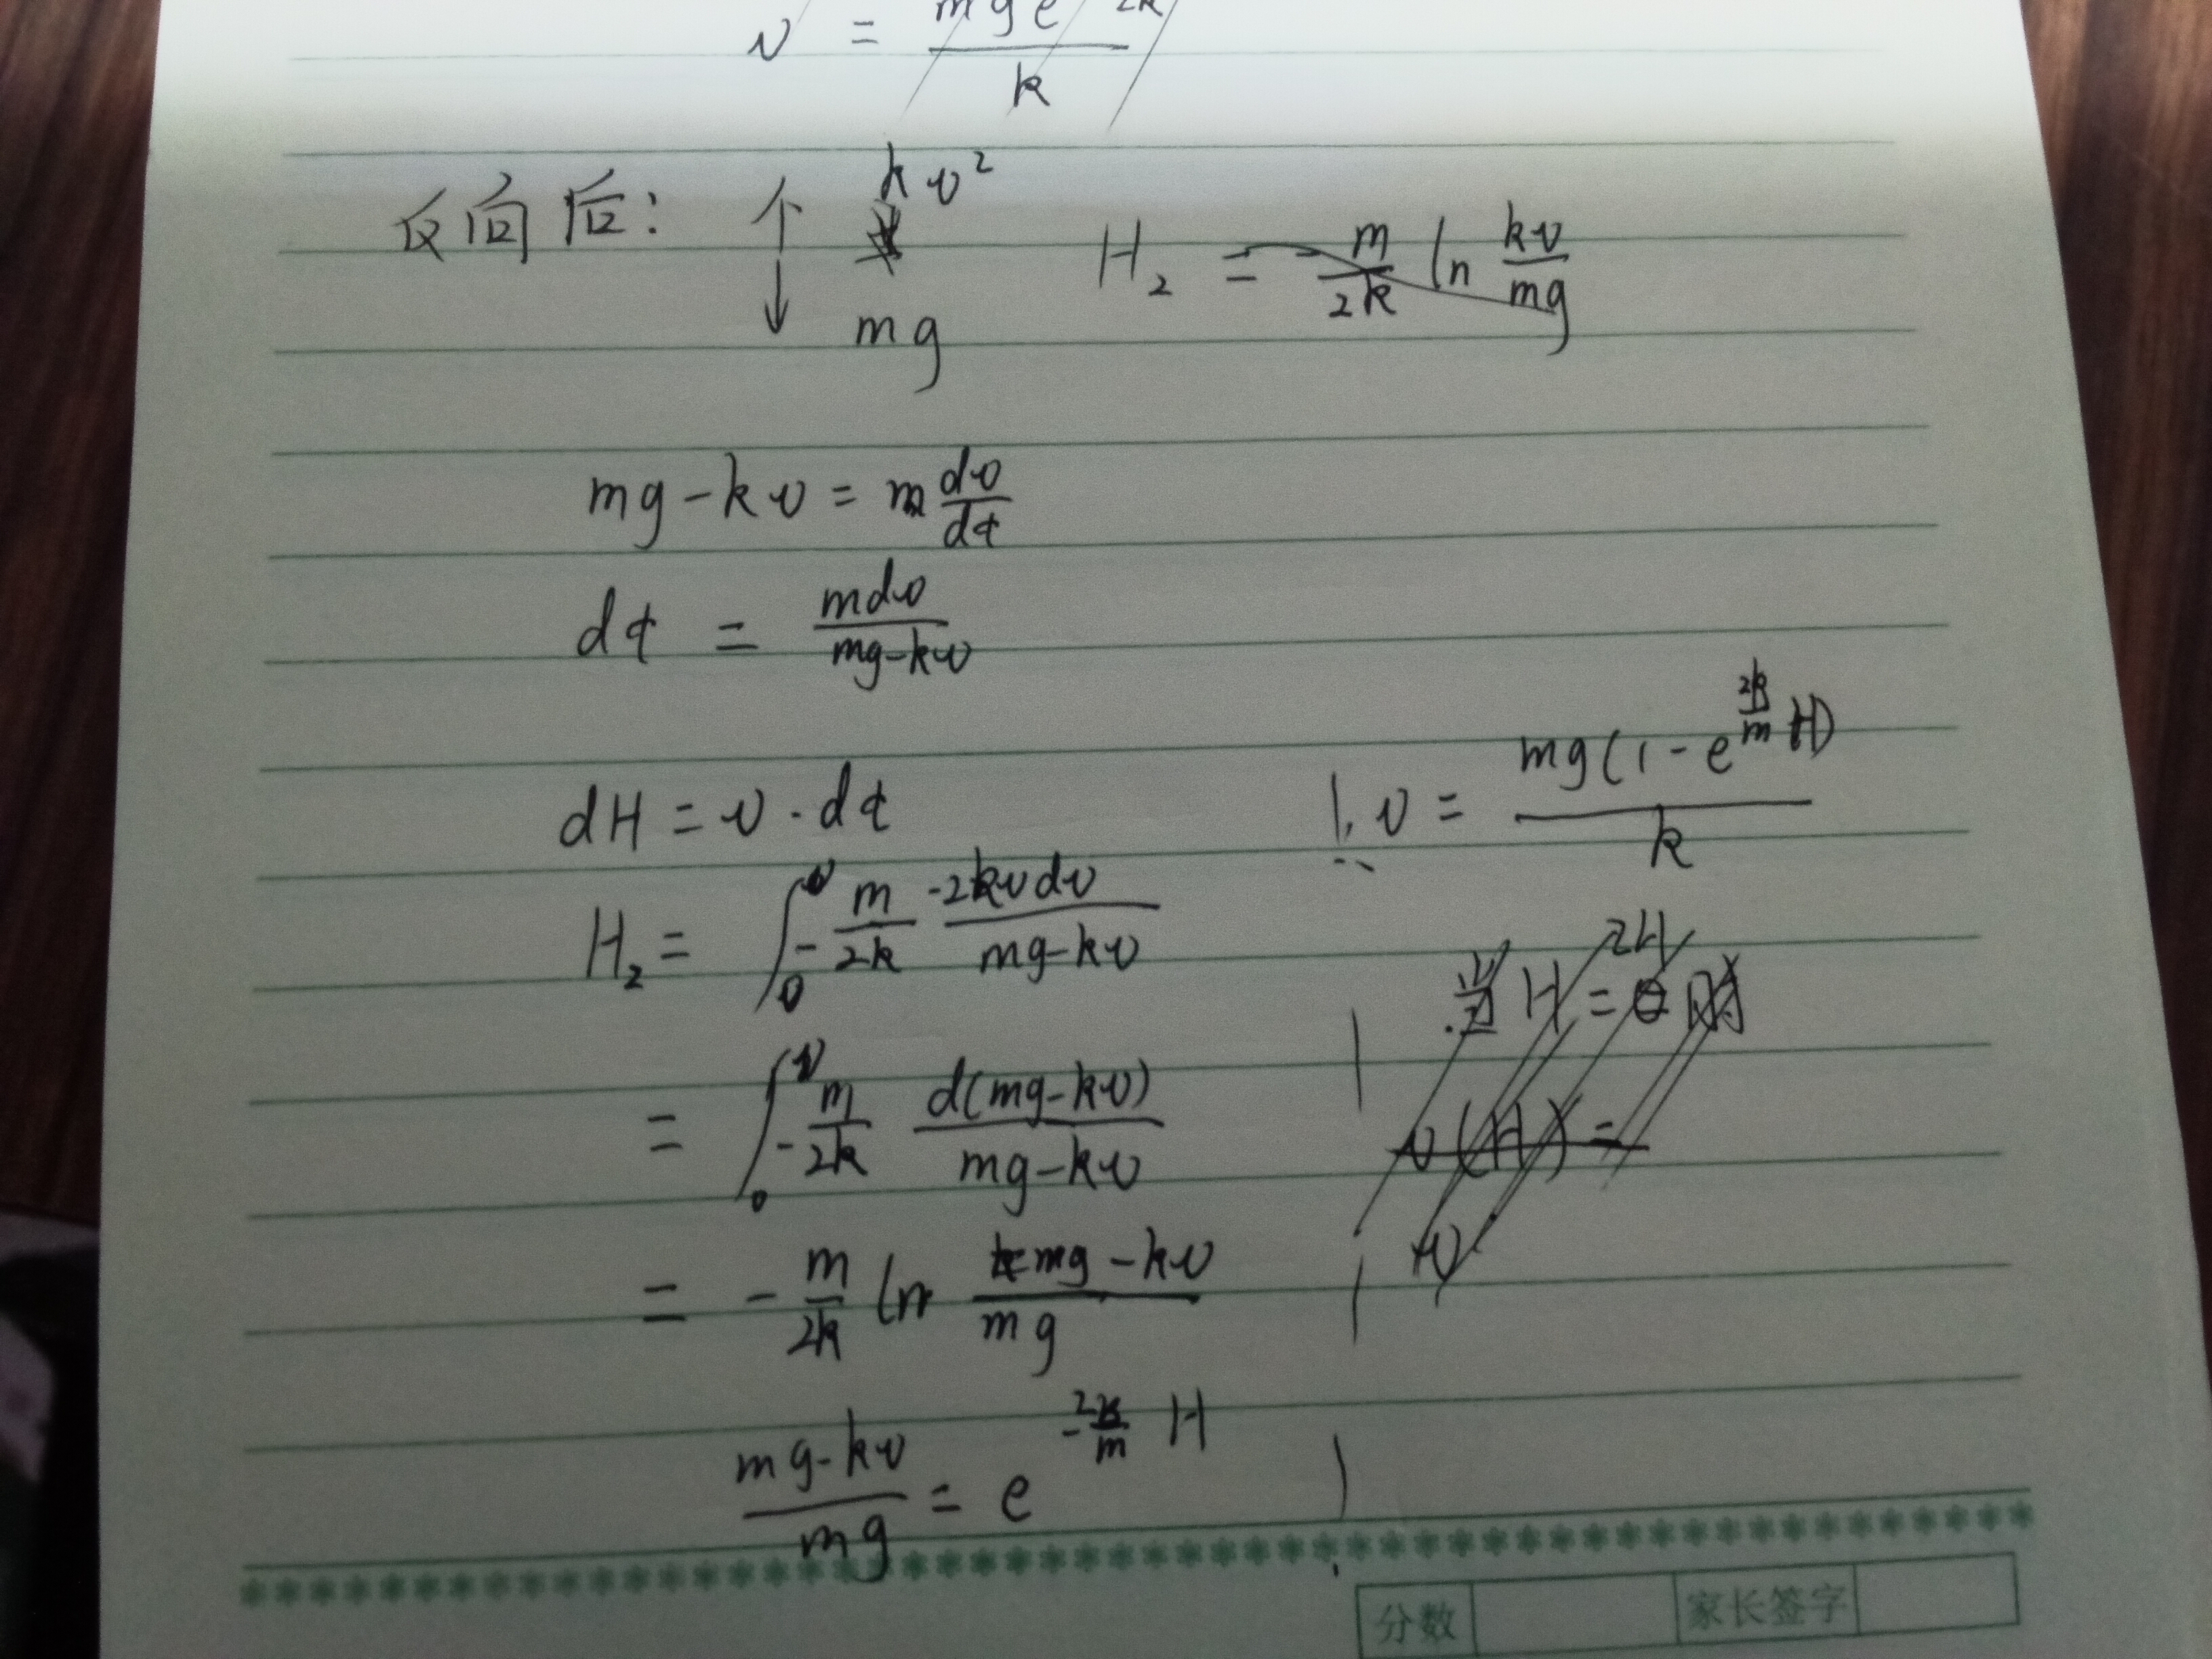 v = mge 2k / k
反向后: ↑ kv²
↓ mg
H₂ = - m/2k ln kv/mg
mg-kv = m dv/dt
dt = mdv/(mg-kv)
dH = v·dt
H₂ = ∫₀^v - m/2k -2kvdv/(mg-kv)
= ∫₀^v - m/2k d(mg-kv)/(mg-kv)
= - m/2k ln (mg-kv)/mg
(mg-kv)/mg = e^(-2k/m H)
v = mg(1-e^(2k/m H))/k
当H=2H时
v(H)=
v
分数 家长签字